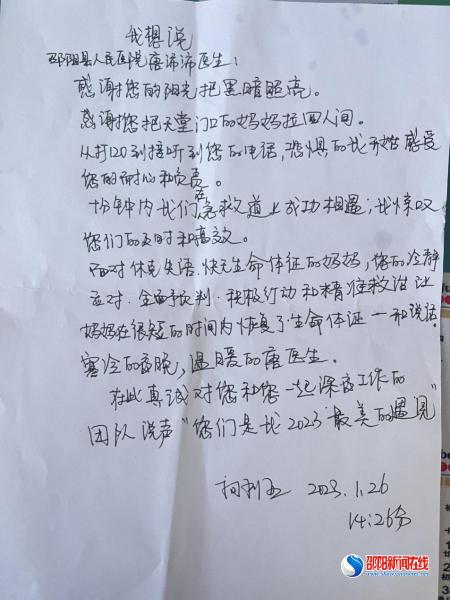 我想说
邵阳县人民医院唐沛沛医生:
感谢您的阳光把黑暗照亮。
感谢您把天堂门口的妈妈拉回人间。
从打120到接听到您的电话,恐惧的我开始感受
您的耐心和负责。
十分钟内我们在急救道上成功相遇;我惊叹
您们的及时和高效。
面对休克失语、快无生命体征的妈妈,您的冷静
应对、全面预判、积极行动和精准救治让
妈妈在很短的时间内恢复了生命体征—和说话。
寒冷的夜晚,温暖的唐医生。
在此真诚对您和您一起深夜工作的
团队说声"您们是我2023最美的遇见"
2023.1.26
14:26分
邵阳新闻在线